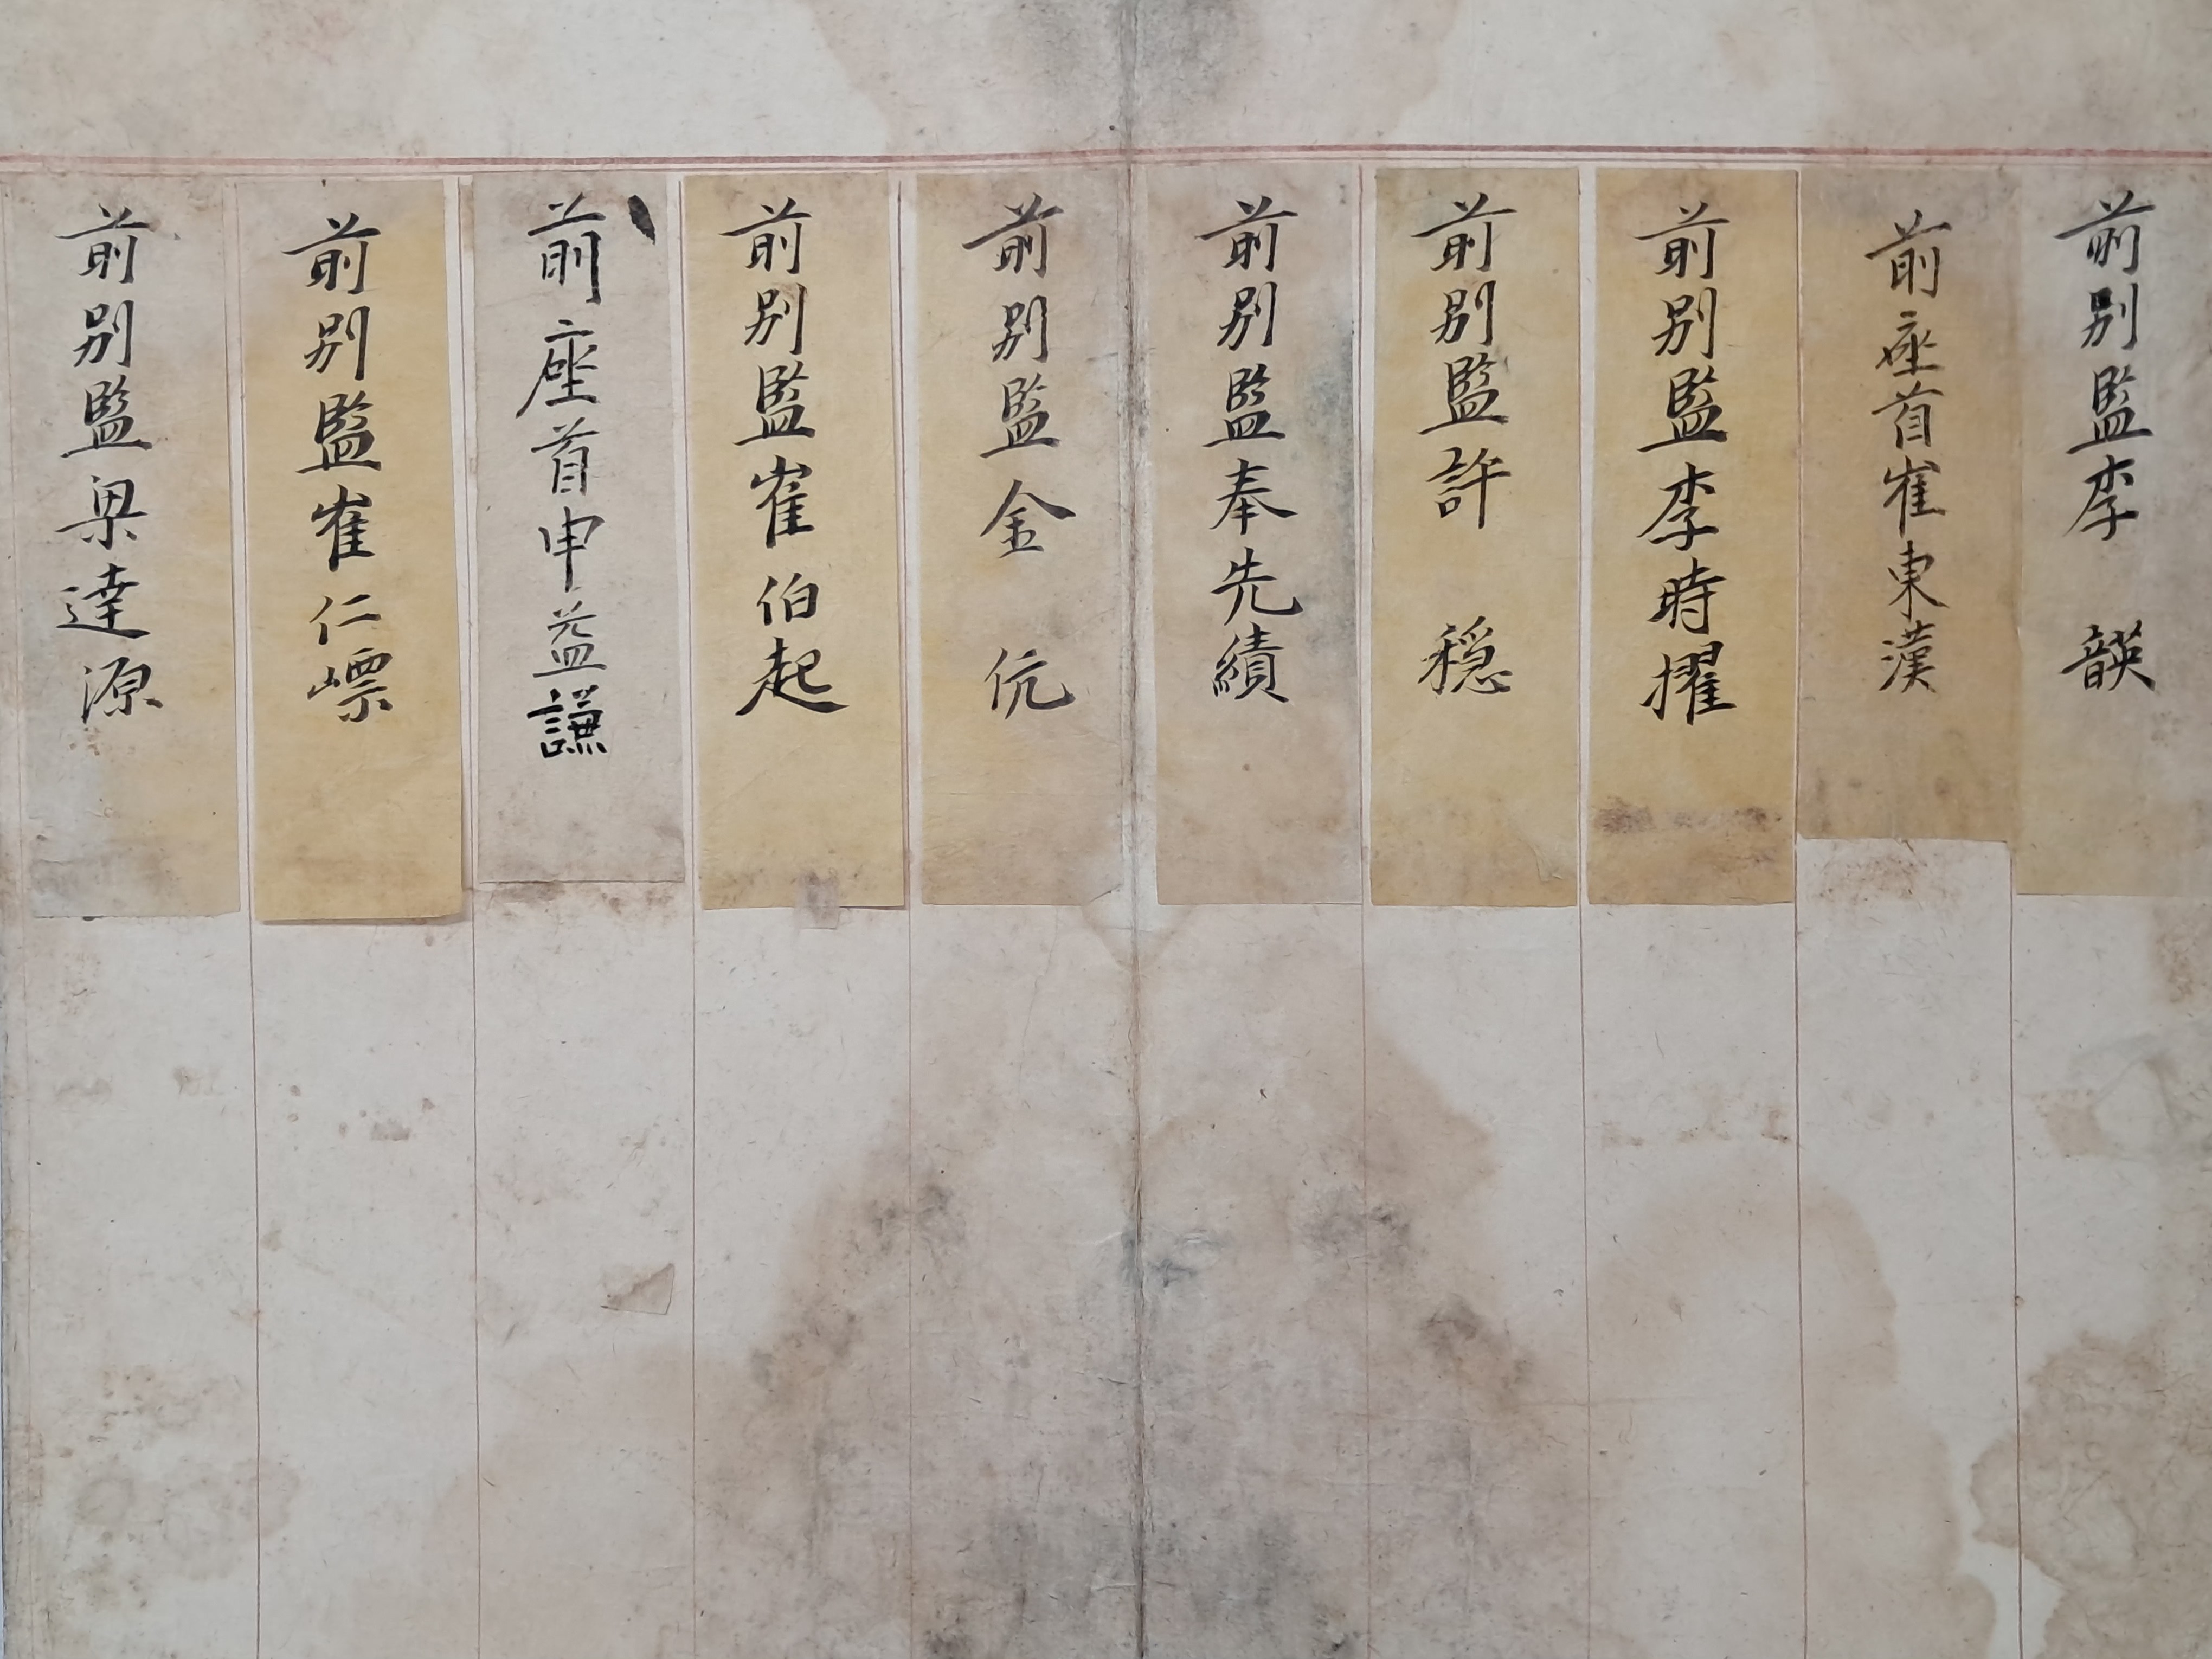 前別監李 韺
前座首崔東漢
前別監李時擢
前別監許 穏
前別監奉先績
前別監金 伉
前別監崔伯起
前座首申益謙
前別監崔仁嶫
前別監梁達源